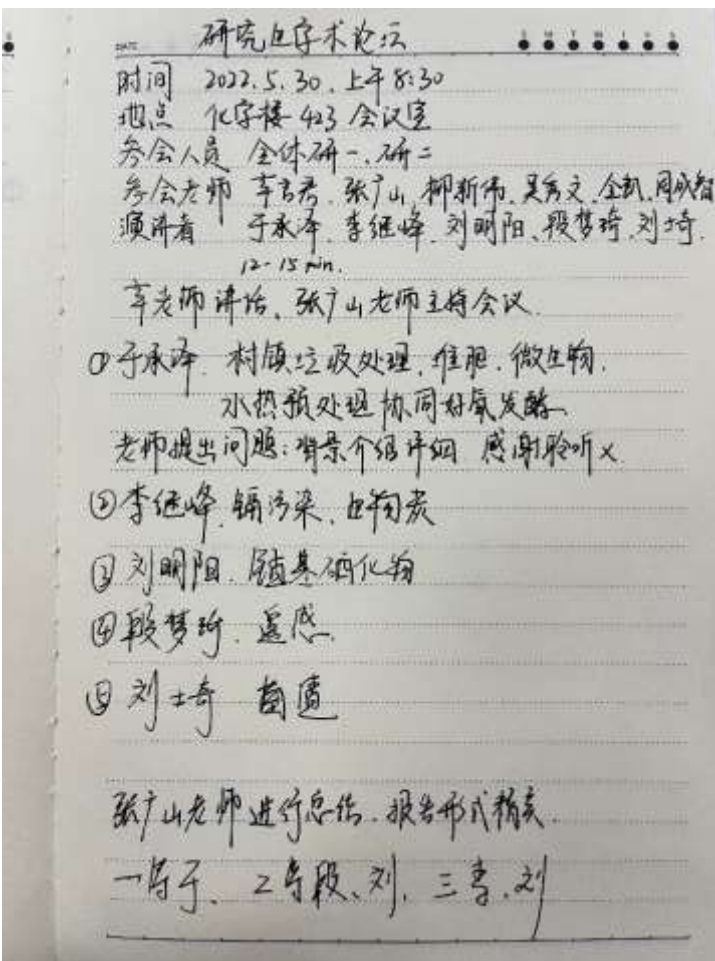 研究生学术论坛
DATE S M T W T F S
时间 2022.5.30.上午8:30
地点 化学楼423会议室
参会人员 全体研一、研二
参会老师 辛言君、张广山、柳新伟、吴秀文、全凯、周成智
演讲者 于承泽、李继峰、刘明阳、段梦琦、刘士琦.
12-15 min.
辛老师讲话、张广山老师主持会议.
①于承泽. 村镇垃圾处理、堆肥、微生物.
水热预处理协同好氧发酵.
老师提出问题:背景介绍详细 感谢聆听×
②李继峰.镉污染、生物炭
③刘明阳.镍基硒化物
④段梦琦.遥感.
⑤刘士奇
张广山老师进行总结.报告形式精美.
一等于、2等段、刘、三李、刘